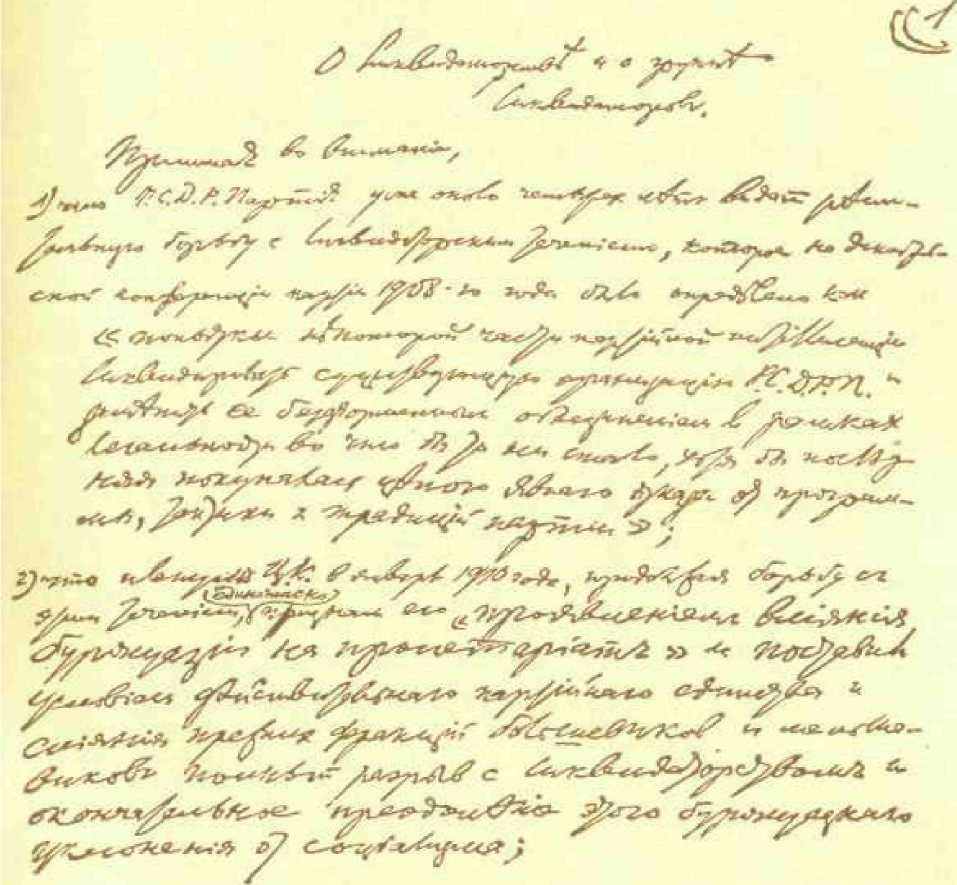 1
О ликвидаторствѣ и о группѣ
ликвидаторовъ.
Принимая во вниманіе,
1) что Р.С.Д.Р. Партія уже около четырех лѣт ведет рѣши-
тельную борьбу с ликвидаторским теченіем, которое на декабрь-
ской конференціи партіи 1908-го года было опредѣлено как
« попытки нѣкоторой части партійной интеллигенціи
ликвидировать существующую организацію Р.С.Д.Р.П. и
замѣнить ее безформенным объединеніем в рамках
легальности во что бы то ни стало, хотя бы послѣд-
няя покупалась цѣною явнаго отказа от програм-
мы, тактики и традицій партии »;
2) что пленум Ц.К. в январѣ 1910 года, продолжая борьбу с
этим теченіем, единогласно признал его « проявленіем вліянія
буржуазіи на пролетаріатъ » и поставил
условіем дѣйствительнаго партійнаго единства и
сліянія прежних фракцій большевиков и меньше-
виковъ полный разрыв с ликвидаторством и
окончательное преодолѣніе этого буржуазнаго
уклоненія от соціализма;